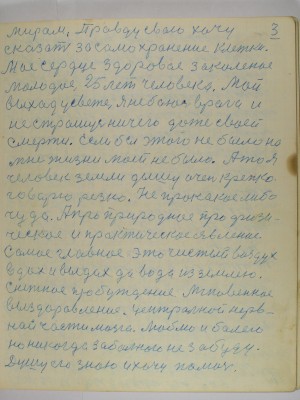 мирам. Правду свою хочу 3
сказат за самохранение клетки.
Мое сердце здоровое закаленое
молодое 25 лет человека. Мой
выход усвете, я небоюс врага и
не страшус ничего даже своей
смерти. Еслиб этого не было
мне жизни моей небыло. А то я
человек земли дышу очен крепко
говорю резко. Не про какое либо
чудо. А про природное про физи-
ческое и практическое явление
Самое главное это чистый воздух
вдох и выдох да вода из землею.
Снежное пробуждение Мгновенное
выздаравление. централной нерв-
ной части мозга. Люблю и болею
но никогда заболного не забуду.
Душу его знаю и хочу помоч.